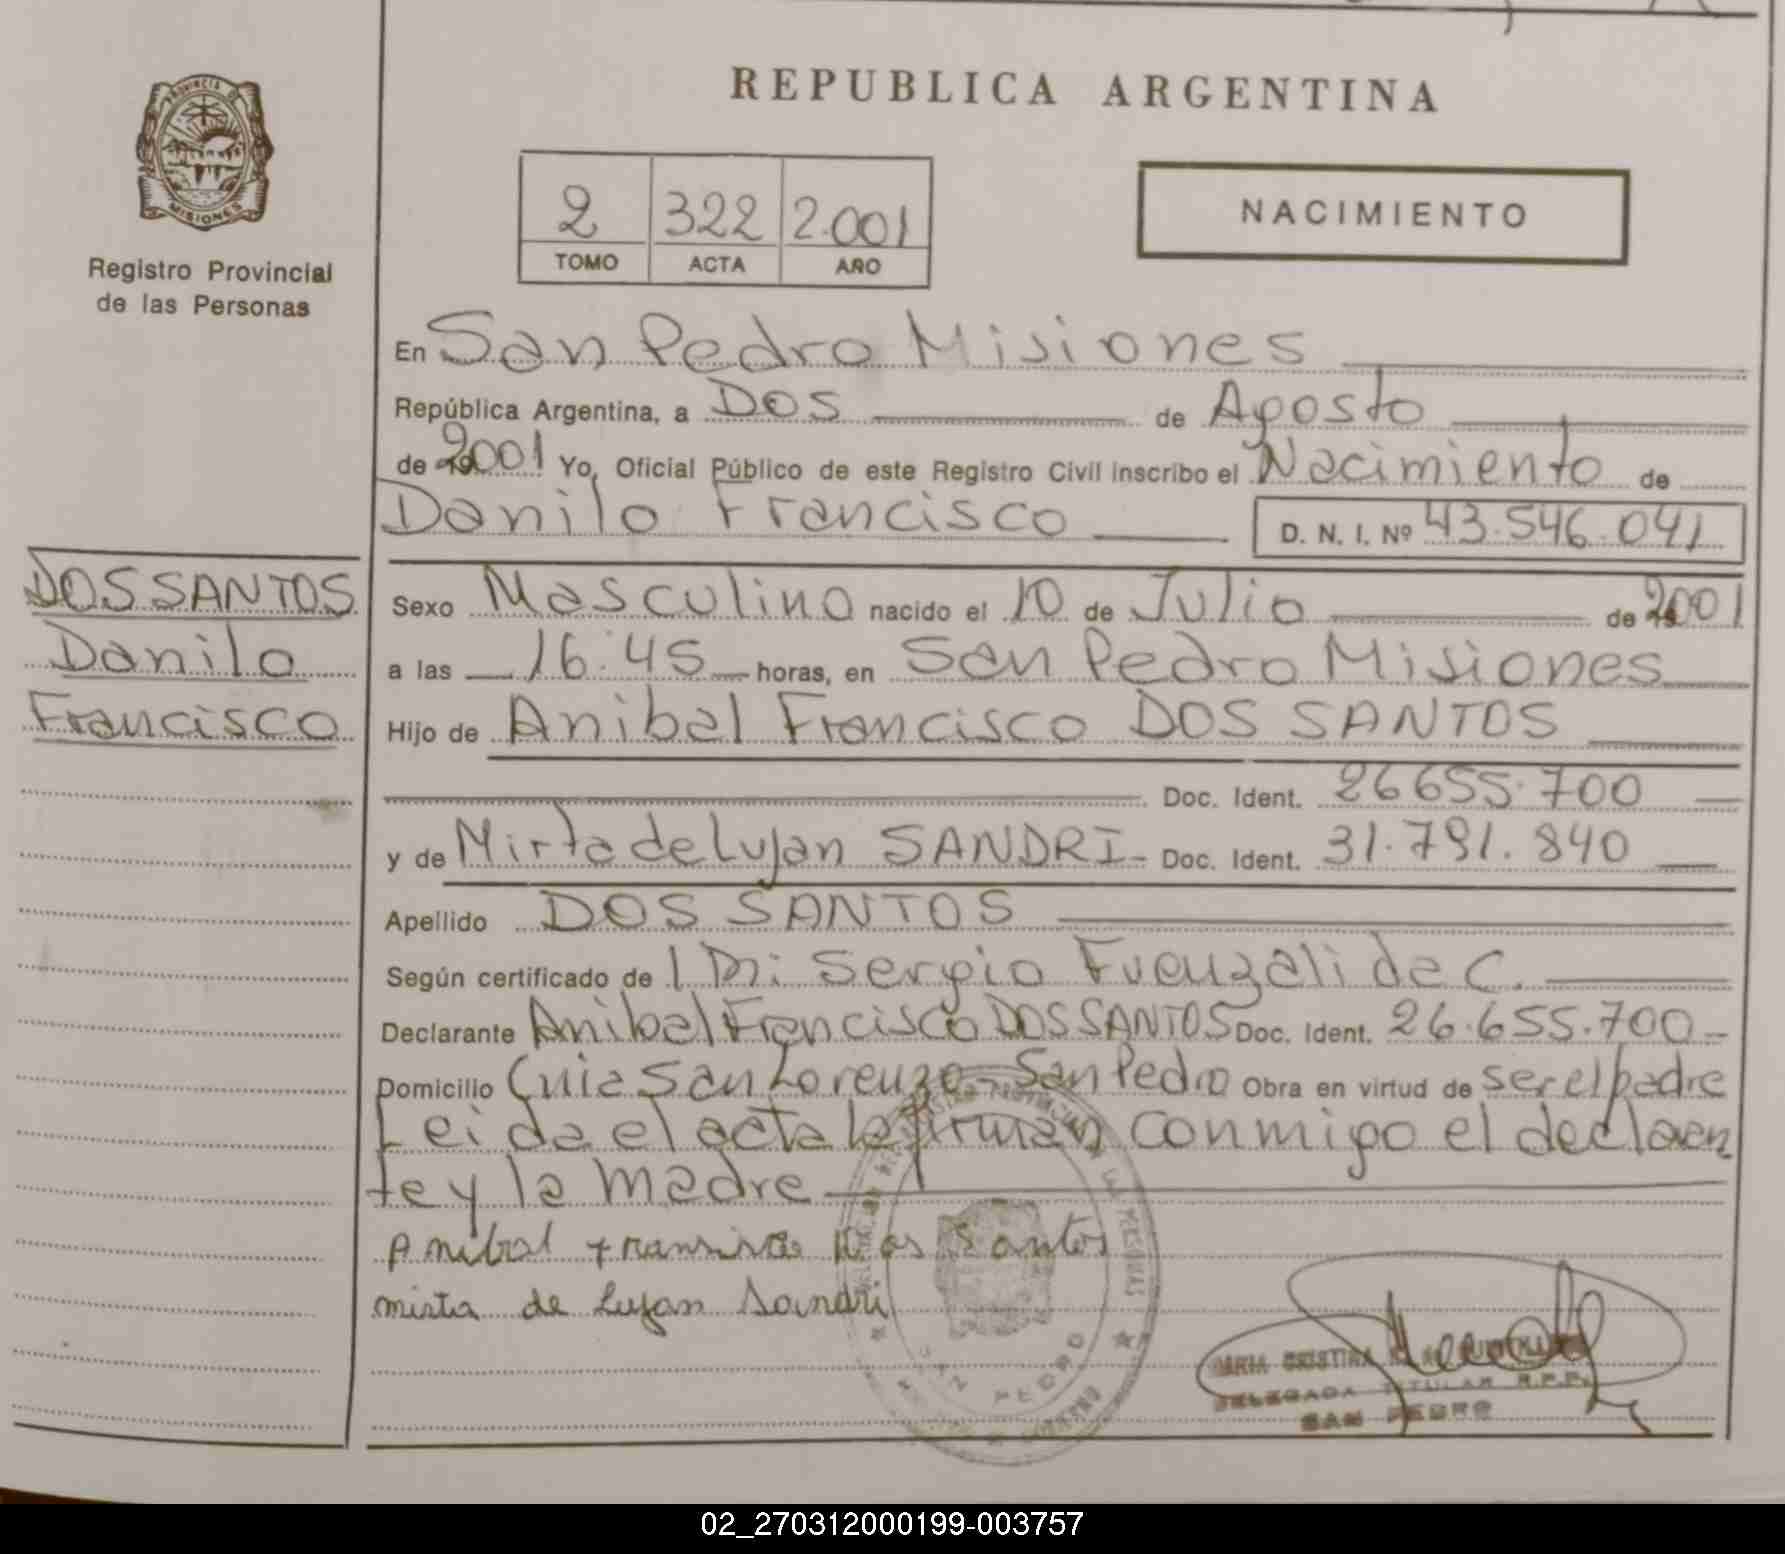 REPUBLICA ARGENTINA
PROVINCIA DE
MISIONES
Registro Provincial
de las Personas
2 322 2.001
TOMO ACTA AÑO
NACIMIENTO
En San Pedro Misiones
República Argentina, a DOS de Agosto
de 2001 Yo, Oficial Público de este Registro Civil inscribo el Nacimiento de
Danilo Francisco D. N. I. Nº 43.546.041
DOS SANTOS
Danilo
Francisco
Sexo Masculino nacido el 10 de Julio de 2001
a las 16:45 horas, en San Pedro Misiones
Hijo de Anibal Francisco DOS SANTOS
Doc. Ident. 26655.700
y de Mirta de Lujan SANDRI Doc. Ident. 31.791.840
Apellido DOS SANTOS
Según certificado de Sergio
Declarante Anibal Francisco DOS SANTOS Doc. Ident. 26.655.700
Domicilio San Lorenzo - San Pedro Obra en virtud de ser el padre
Leida el acta la firman conmigo el declaran
te y la madre
Anibal Francisco Dos Santos
mirta de Lujan Sandri
SAN PEDRO
MARIA CRISTINA
DELEGADA TITULAR R.P.P.
SAN PEDRO
02_270312000199-003757